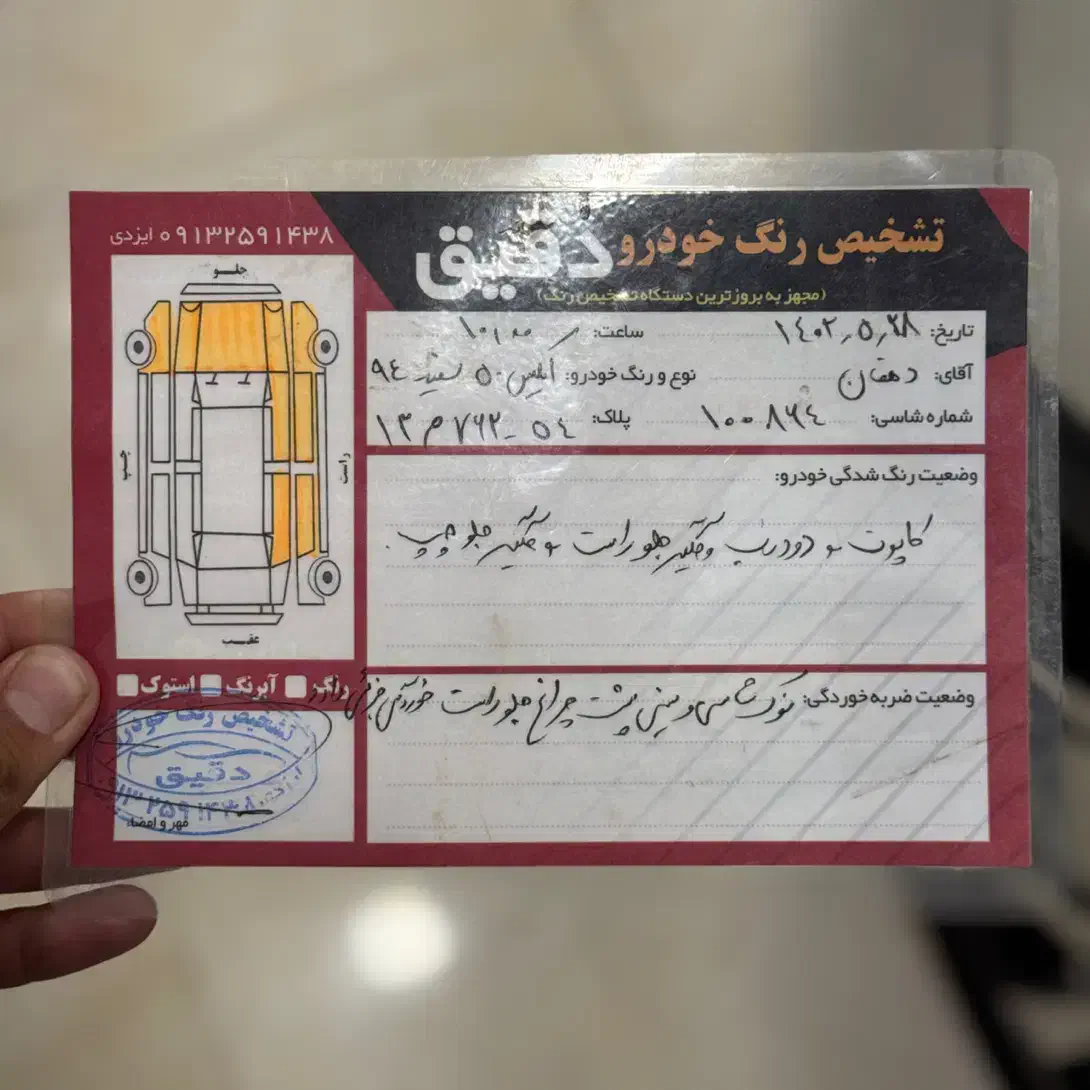 تشخیص رنگ خودرو دقیق
(مجهز به بروزترین دستگاه تشخیص رنگ)
۰۹۱۳۲۵۹۱۴۳۸ ایزدی
تاریخ: ۱۴۰۲,۵,۲۸ ساعت: ۱۰,۰۰
آقای: دهقان نوع و رنگ خودرو: ۵۰ سفید ۹۴
شماره شاسی: ۱۰۰۸۶۴ پلاک: ۱۳ ۷۶۲-۵۴
وضعیت رنگ شدگی خودرو:
کاپوت و دودرب و گلگیر جلو راست و گلگیر جلو چپ.
وضعیت ضربه خوردگی: نوک شاسی و سینی پشت چراغ جلو راست خوردگی جزئی دارد
جلو
چپ
راست
عقب
رنگ آبرنگ استوک
تشخیص رنگ خودرو
دقیق
۰۹۱۳۲۵۹۱۴۳۸
مهر و امضاء